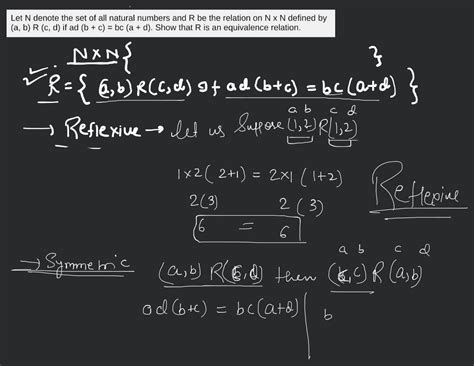 Let N denote the set of all natural numbers and R be the relation on N x N defined by
(a, b) R (c, d) if ad (b + c) = bc (a + d). Show that R is an equivalence relation.
N×N { }
R = { (a,b) R (c,d) if ad (b+c) = bc (a+d) }
a b c d
→ Reflexive → let us Suppose (1,2) R (1,2)
1×2 (2+1) = 2×1 (1+2)
2(3) 2 (3)
6 = 6
Reflexive
a b c d
→ Symmetric (a,b) R (c,d) then R (a,b)
ad (b+c) = bc (a+d) | b